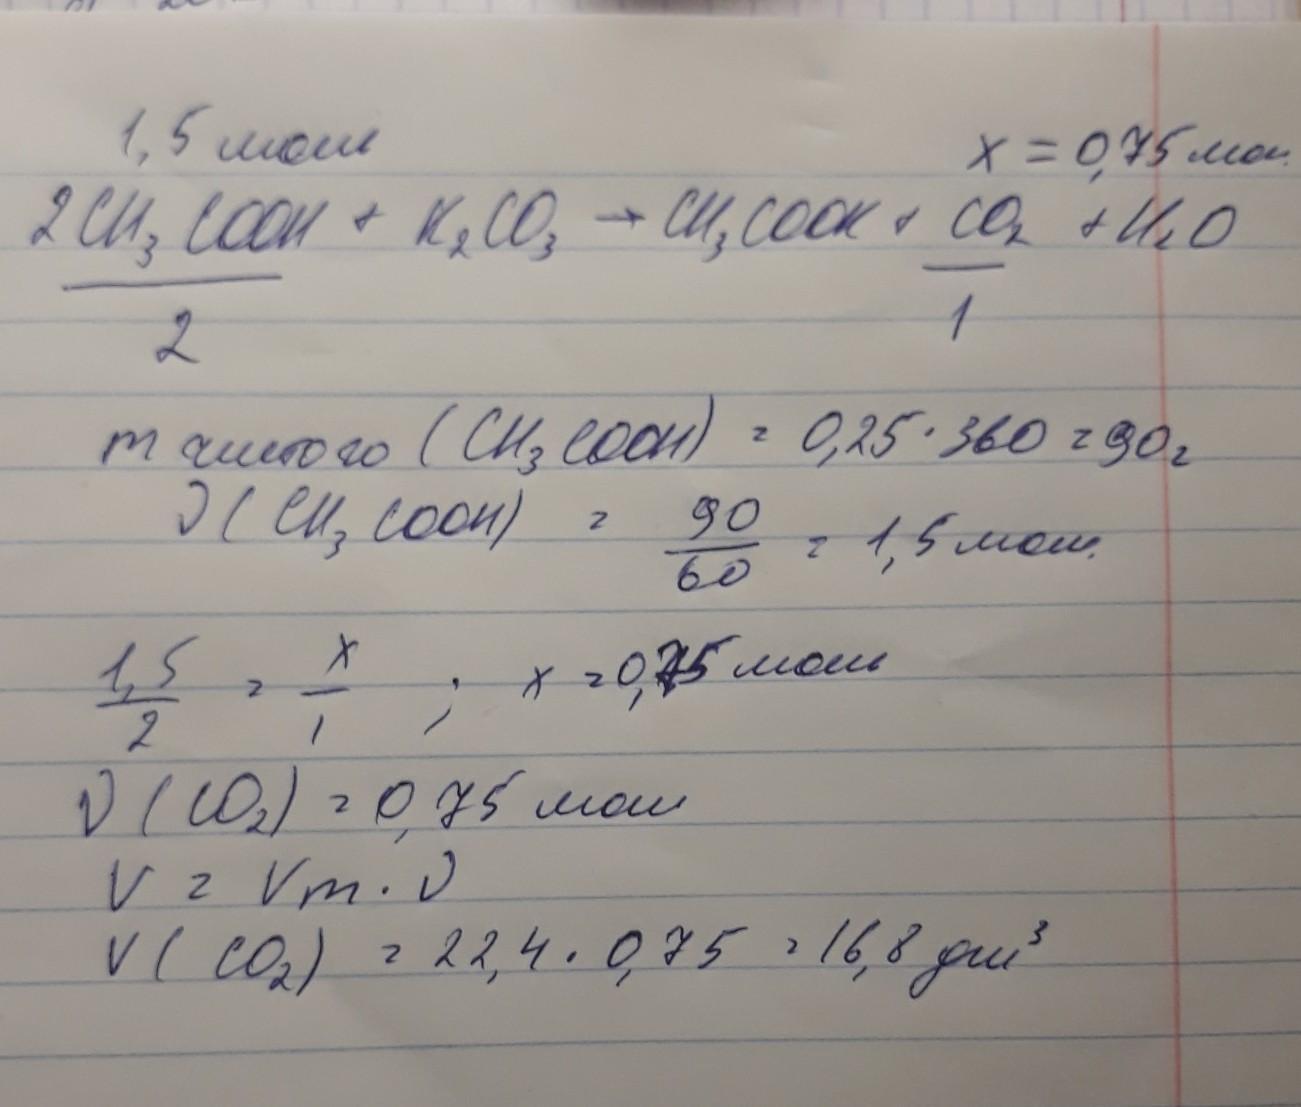 1,5 моль x = 0,75 мол.
2CH₃COOH + K₂CO₃ → CH₃COOK + CO₂ + H₂O
2 1
m чистого (CH₃COOH) = 0,25 · 360 = 90г
ν(CH₃COOH) = 90/60 = 1,5 моль
1,5/2 = x/1 ; x = 0,75 моль
ν(CO₂) = 0,75 моль
V = Vm · ν
V(CO₂) = 22,4 · 0,75 = 16,8 дм³